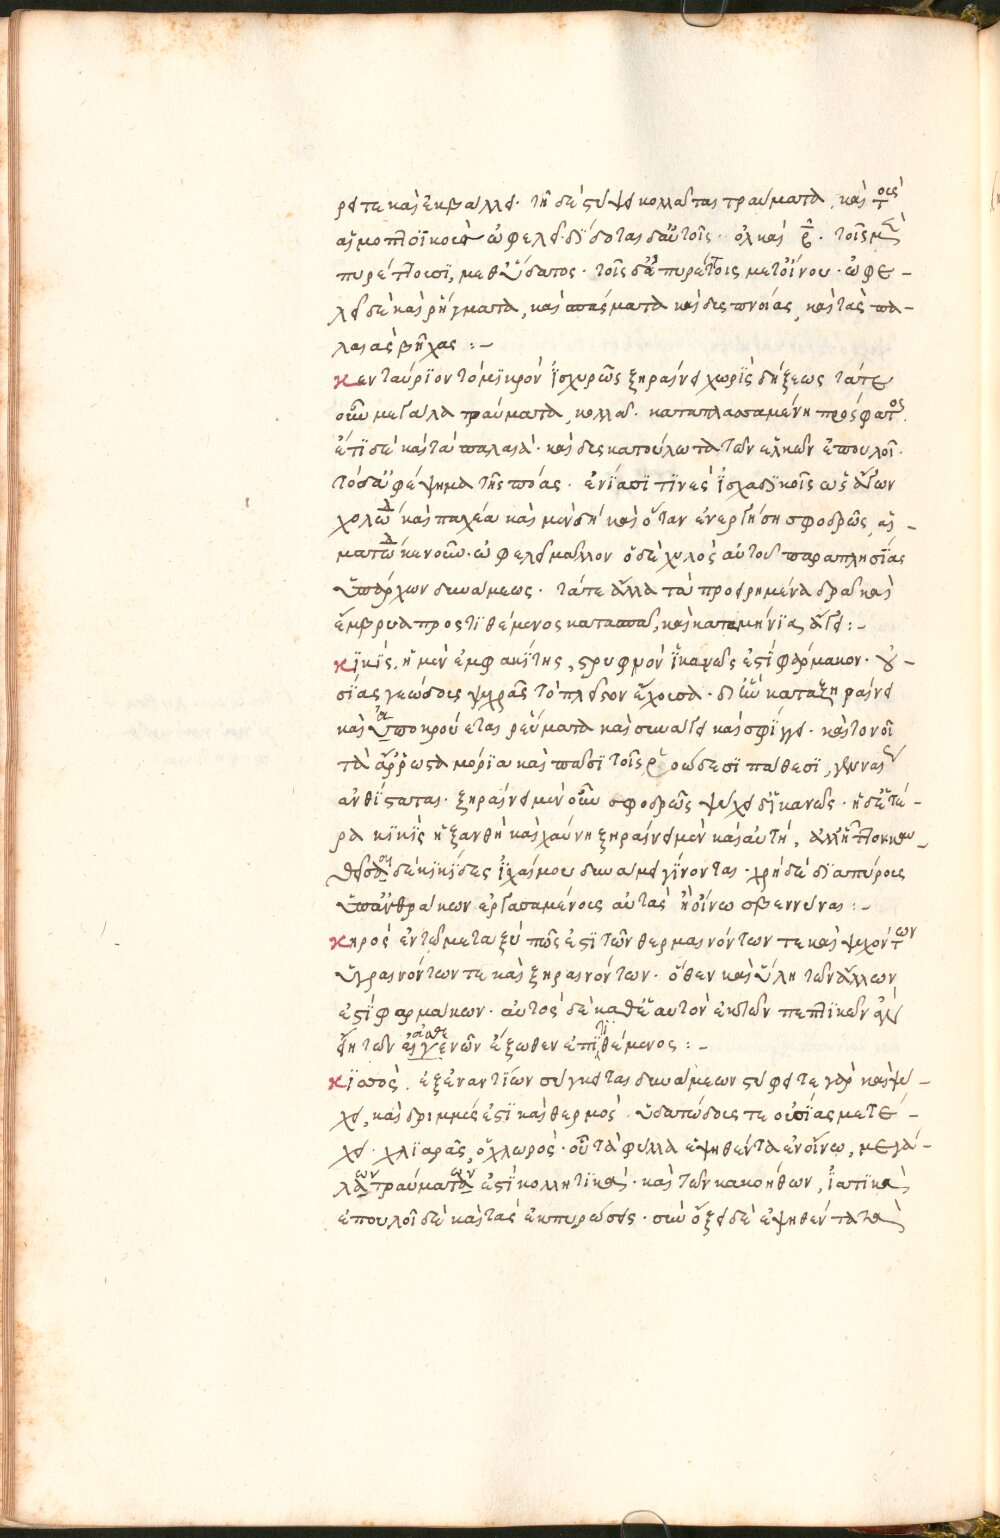 ρει τε καὶ ἐκβάλλει. τῇ δὲ στύψει κολλᾶται τραύματα, καὶ τοῖς
αἱμοπτοϊκοῖς ὠφελεῖ. δίδοται δ' αὐτοῖς. ὁλκαὶ τοῖς μὲν
πυρέττουσι, μεθ' ὕδατος. τοῖς δ' ἀπυρέτοις μετ' οἴνου. ὠφε-
λεῖ δὲ καὶ ῥήγματα, καὶ σπάσματα καὶ δυσπνοίας, καὶ τὰς πα-
λαιὰς βῆχας :-
κενταύριον τὸ μικρὸν ἰσχυρῶς ξηραίνει χωρὶς δήξεως τά τε
οὖν μεγάλα τραύματα, κολλᾷ. καταπλασσαμένη πρόσφατος.
ἔτι δὲ καὶ τὰ παλαιὰ. καὶ δυσκατούλωτα τῶν ἑλκῶν ἐπουλοῖ.
τὸ δ' ἀφέψημα τῆς πόας. ἐνιᾶσι τινὲς ἰσχιαδικοῖς ὡς ἄγον
χολώδη καὶ παχέα καὶ μὲν δὴ καὶ ὅταν ἐνεργήσῃ σφοδρῶς, αἱ-
ματώδη κενοῦν. ὠφελεῖ μᾶλλον ὁ δὲ χυλὸς αὐτοῦ παραπλησίας
ὑπάρχων δυνάμεως. τά τε ἄλλα τὰ προειρημένα δρᾷ καὶ
ἔμβρυα προστιθέμενος κατασπᾷ, καὶ καταμήνια ἄγει :-
κικὶς, ἡ μὲν ὀμφακίτης, στρυφνὸν ἱκανῶς ἐστὶ φάρμακον. οὐ-
σίας γεώδους ψυχρᾶς τὸ πλεῖον ἔχουσα. δι' ὧν καταξηραίνει
καὶ ἀποκρούεται ῥεύματα καὶ συνάγει καὶ σφίγγει. καὶ τονοῖ
τὰ ἄρρωστα μόρια καὶ πᾶσι τοῖς ῥοώδεσι πάθεσι, γενναίως
ἀνθίσταται. ξηραίνει μὲν οὖν σφοδρῶς ψύχει δ' ἱκανῶς. ἡ δ' ἑτέ-
ρα κικὶς ἡ ξανθὴ καὶ χαύνη ξηραίνει μὲν καὶ αὐτὴ, ἀλλ' ἧττον καυ-
θεῖσαι δὲ κικίδες ἰσχαίμου δυνάμει γίνονται. χρὴ δὲ διαπύροις
ὑπ' ἀνθράκων ἐργασαμένους αὐτὰς ἢ οἴνω σβεννύναι :-
κηρὸς ἐν τῶ μεταξύ πως ἐστὶ τῶν θερμαινόντων τε καὶ ψυχόντων
ὑγραινόντων τε καὶ ξηραινόντων. ὅθεν καὶ ὕλη τῶν ἄλλων
ἐστὶ φαρμάκων. αὐτὸς δὲ καθ' ἑαυτὸν ἐκ τῶν πεπτικῶν ἂν
εἴη τῶν ἀσθενῶν ἔξωθεν ἐπιτιθέμενος :-
κισσὸς, ἐξ ἐναντίων σύγκειται δυνάμεων στύφει τε γὰρ καὶ ψύ-
χει, καὶ δριμύς ἐστι καὶ θερμὸς. ὑδατώδους τε οὐσίας μετέ-
χει. χλιαρᾶς, ὁ χλωρὸς. οὗ τὰ φύλλα ἑψηθέντα ἐν οἴνω, μεγά-
λων τραυμάτων ἐστὶ κολλητικὰ. καὶ τῶν κακοήθων, ἰατικὰ,
ἐπουλοῖ δὲ καὶ τὰς ἐκπυρώσεις. σὺν ὄξει δὲ ἑψηθέντα τὰ